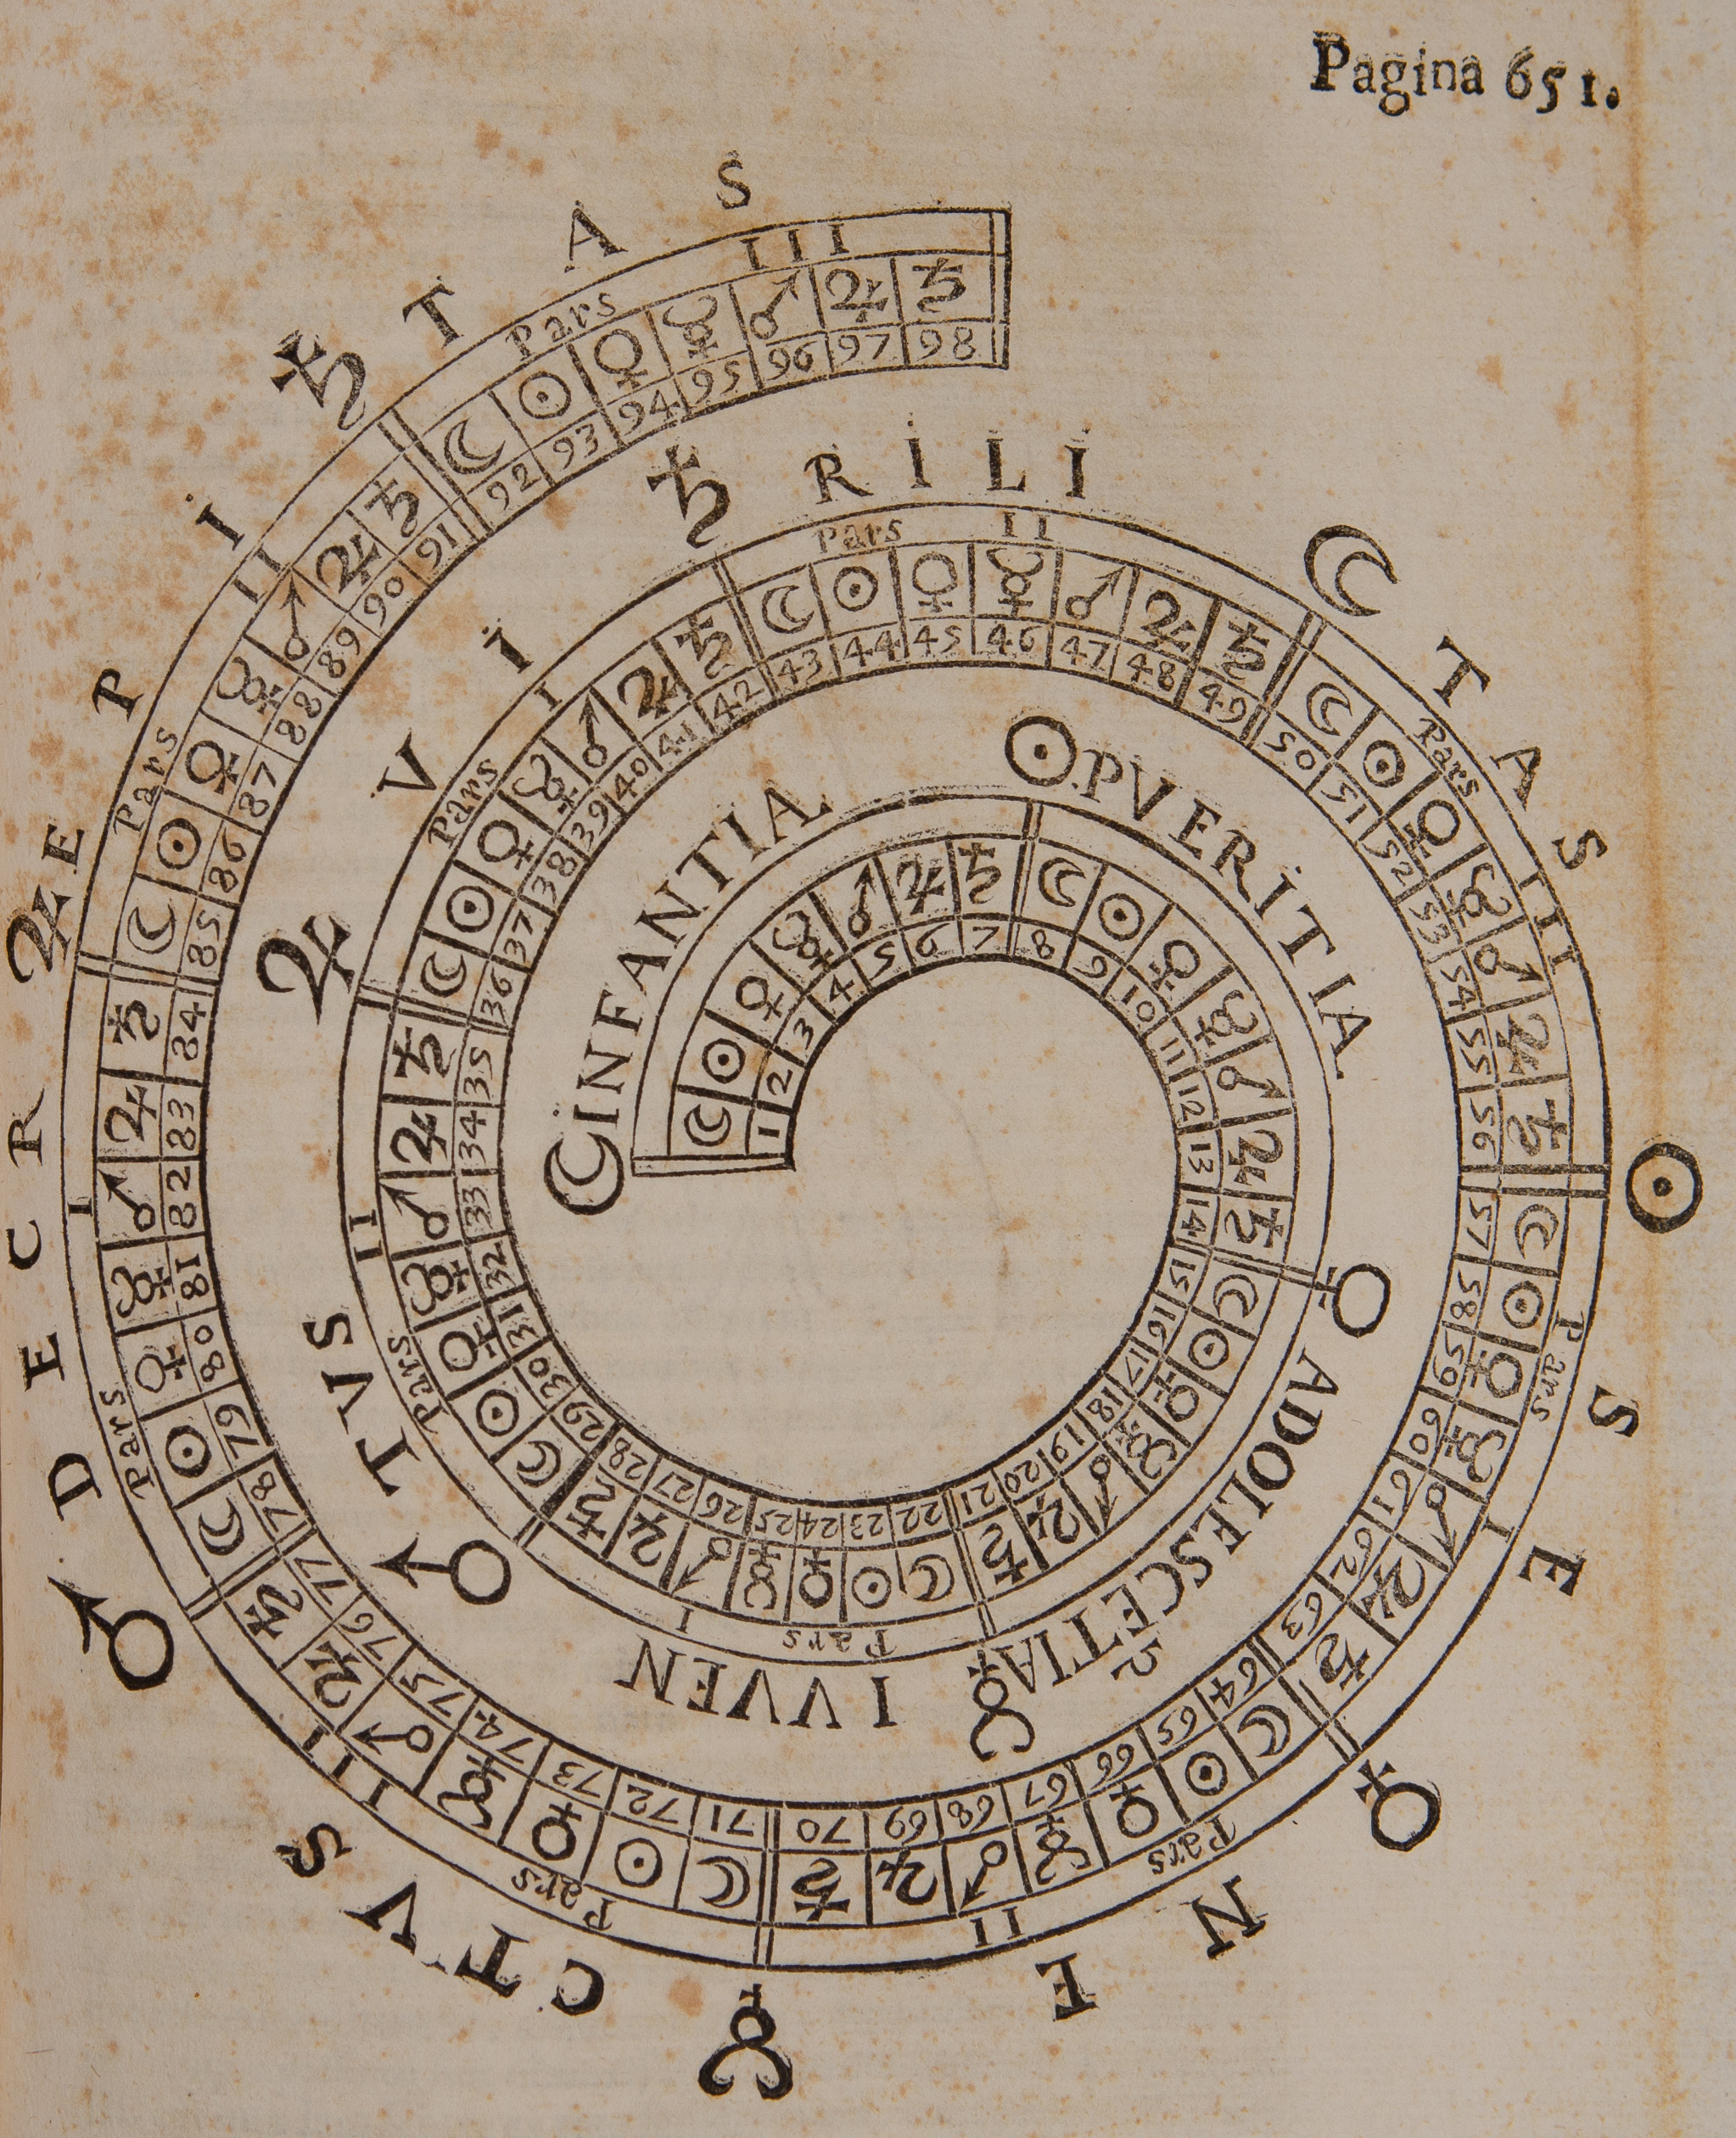 Pagina 651.
☾ INFANTIA.
☽ ☉ ♀ ☿ ♂ ♃ ♄
1 2 3 4 5 6 7
☉ .PVERITIA.
☽ ☉ ♀ ☿ ♂ ♃ ♄
8 9 10 11 12 13 14
♀ ADOLESCETIA
☽ ☉ ♀ ☿ ♂ ♃ ♄
15 16 17 18 19 20 21
☿ IVVEN
Pars I
☽ ☉ ♀ ☿ ♂ ♃ ♄
22 23 24 25 26 27 28
♂ TVS
Pars II
☽ ☉ ♀ ☿ ♂ ♃ ♄
29 30 31 32 33 34 35
♃ VI
Pars I
☽ ☉ ♀ ☿ ♂ ♃ ♄
36 37 38 39 40 41 42
♄ RILI
Pars II
☽ ☉ ♀ ☿ ♂ ♃ ♄
43 44 45 46 47 48 49
☽ TAS
Pars III
☽ ☉ ♀ ☿ ♂ ♃ ♄
50 51 52 53 54 55 56
☉ SE
Pars I
☽ ☉ ♀ ☿ ♂ ♃ ♄
57 58 59 60 61 62 63
♀ NE
Pars II
☽ ☉ ♀ ☿ ♂ ♃ ♄
64 65 66 67 68 69 70
☿ CTVS
Pars III
☽ ☉ ♀ ☿ ♂ ♃ ♄
71 72 73 74 75 76 77
♂ DECR
Pars I
☽ ☉ ♀ ☿ ♂ ♃ ♄
78 79 80 81 82 83 84
♃ EPI
Pars II
☽ ☉ ♀ ☿ ♂ ♃ ♄
85 86 87 88 89 90 91
♄ TAS
Pars III
☽ ☉ ♀ ☿ ♂ ♃ ♄
92 93 94 95 96 97 98